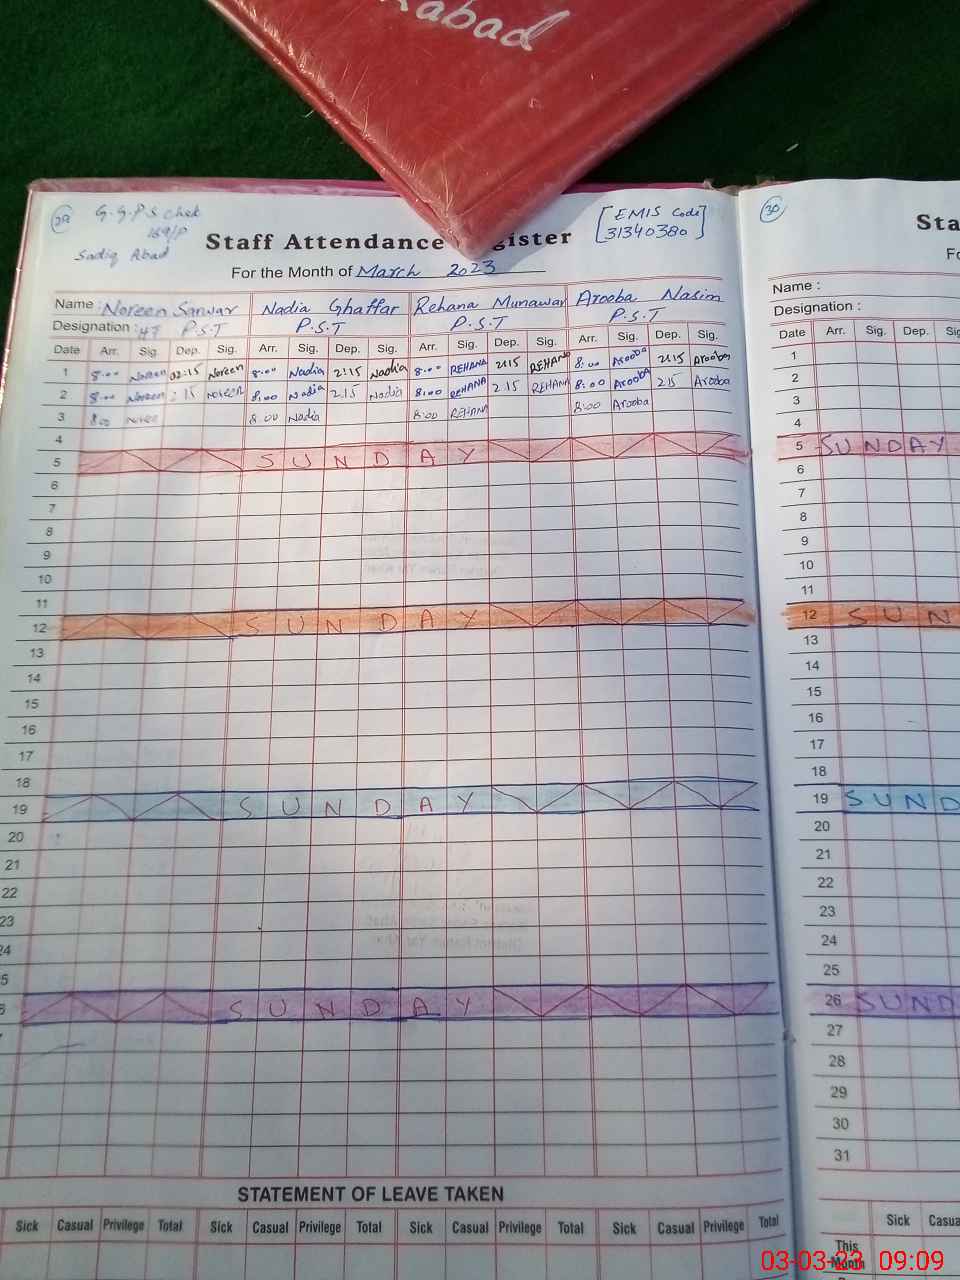 abad
29
G.G.P.S Chak
169/P
Sadiq Abad
Staff Attendance gister
[EMIS Code]
31340380
For the Month of March 2023
Name : Noreen Sarwar Nadia Ghaffar Rehana Munawar Arooba Nasim
Designation : P.S.T P.S.T P.S.T P.S.T
Date Arr. Sig. Dep. Sig. Arr. Sig. Dep. Sig. Arr. Sig. Dep. Sig. Arr. Sig. Dep. Sig.
1 8:00 Noreen 02:15 Noreen 8:00 Nadia 2:15 Nadia 8:00 REHANA 2:15 REHANA 8:00 Arooba 2:15 Arooba
2 8:00 Noreen 2:15 Noreen 8:00 Nadia 2:15 Nadia 8:00 REHANA 2:15 REHANA 8:00 Arooba 2:15 Arooba
3 8:00 Noreen 8:00 Nadia 8:00 REHANA 8:00 Arooba
4
5 SUNDAY
6
7
8
9
10
11
12 SUNDAY
13
14
15
16
17
18
19 SUNDAY
20
21
22
23
24
5
6 SUNDAY
STATEMENT OF LEAVE TAKEN
Sick Casual Privilege Total Sick Casual Privilege Total Sick Casual Privilege Total Sick Casual Privilege Total
30
Sta
Fo
Name :
Designation :
Date Arr. Sig. Dep. Sig.
1
2
3
4
5 SUNDAY
6
7
8
9
10
11
12 SUN
13
14
15
16
17
18
19 SUND
20
21
22
23
24
25
26 SUND
27
28
29
30
31
Sick Casua
This
Month
03-03-23 09:09